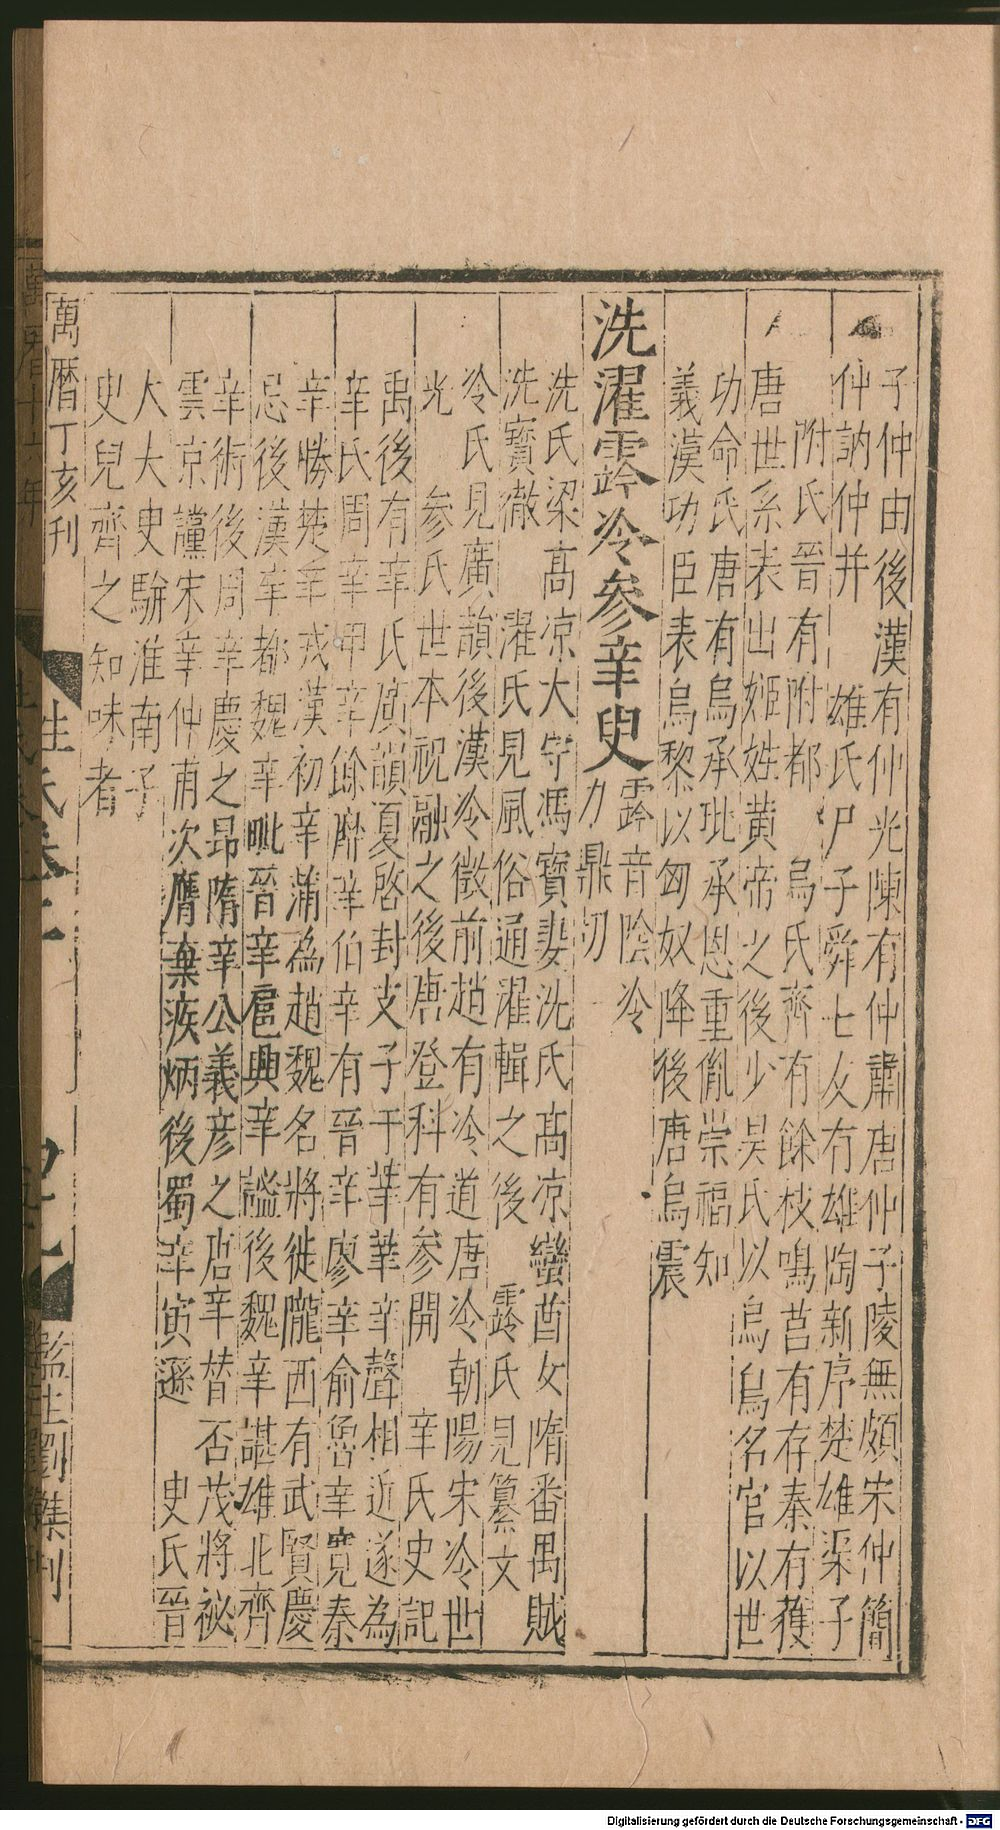 子仲由後漢有仲光陳有仲肅唐仲子陵無頗宋仲簡
仲訥仲并　雄氏尸子舜七友有雄陶新序楚雄渠子
附氏晉有附都　烏氏齊有餘枝鳴莒有存秦有獲
唐世系表出姬姓黃帝之後少昊氏以烏鳥名官以世
功命氏唐有烏承玼承恩重胤崇福知
義漢功臣表烏黎以匈奴降後唐烏震
洗濯霠冷參辛㕥
霠音陰冷
力鼎切
洗氏梁高凉大守馮寶妻洗氏高凉蠻酋女隋番禺賊
洗寶徹　濯氏見風俗通濯輯之後　霠氏見纂文
冷氏見廣韻後漢冷徵前趙有冷道唐冷朝陽宋冷世
光　參氏世本祝融之後唐登科有參開　辛氏史記
禹後有辛氏廣韻夏啓封支子于莘莘辛聲相近遂為
辛氏周辛甲辛餘靡辛伯辛有晉辛廖辛俞魯辛寬秦
辛勝楚辛戎漢初辛蒲為趙魏名將徙隴西有武賢慶
忌後漢辛都魏辛毗晉辛扈興辛謐後魏辛諶雄北齊
辛術後周辛慶之昂隋辛公義彦之唐辛替否茂將祕
雲京讜宋辛仲甫次膺棄疾炳後蜀辛寅遜　㕥氏晉
大大㕥騈淮南子
㕥兒齊之知味者
萬曆丁亥刊
姓氏卷
監生劉
刊
Digitalisierung gefördert durch die Deutsche Forschungsgemeinschaft - DFG